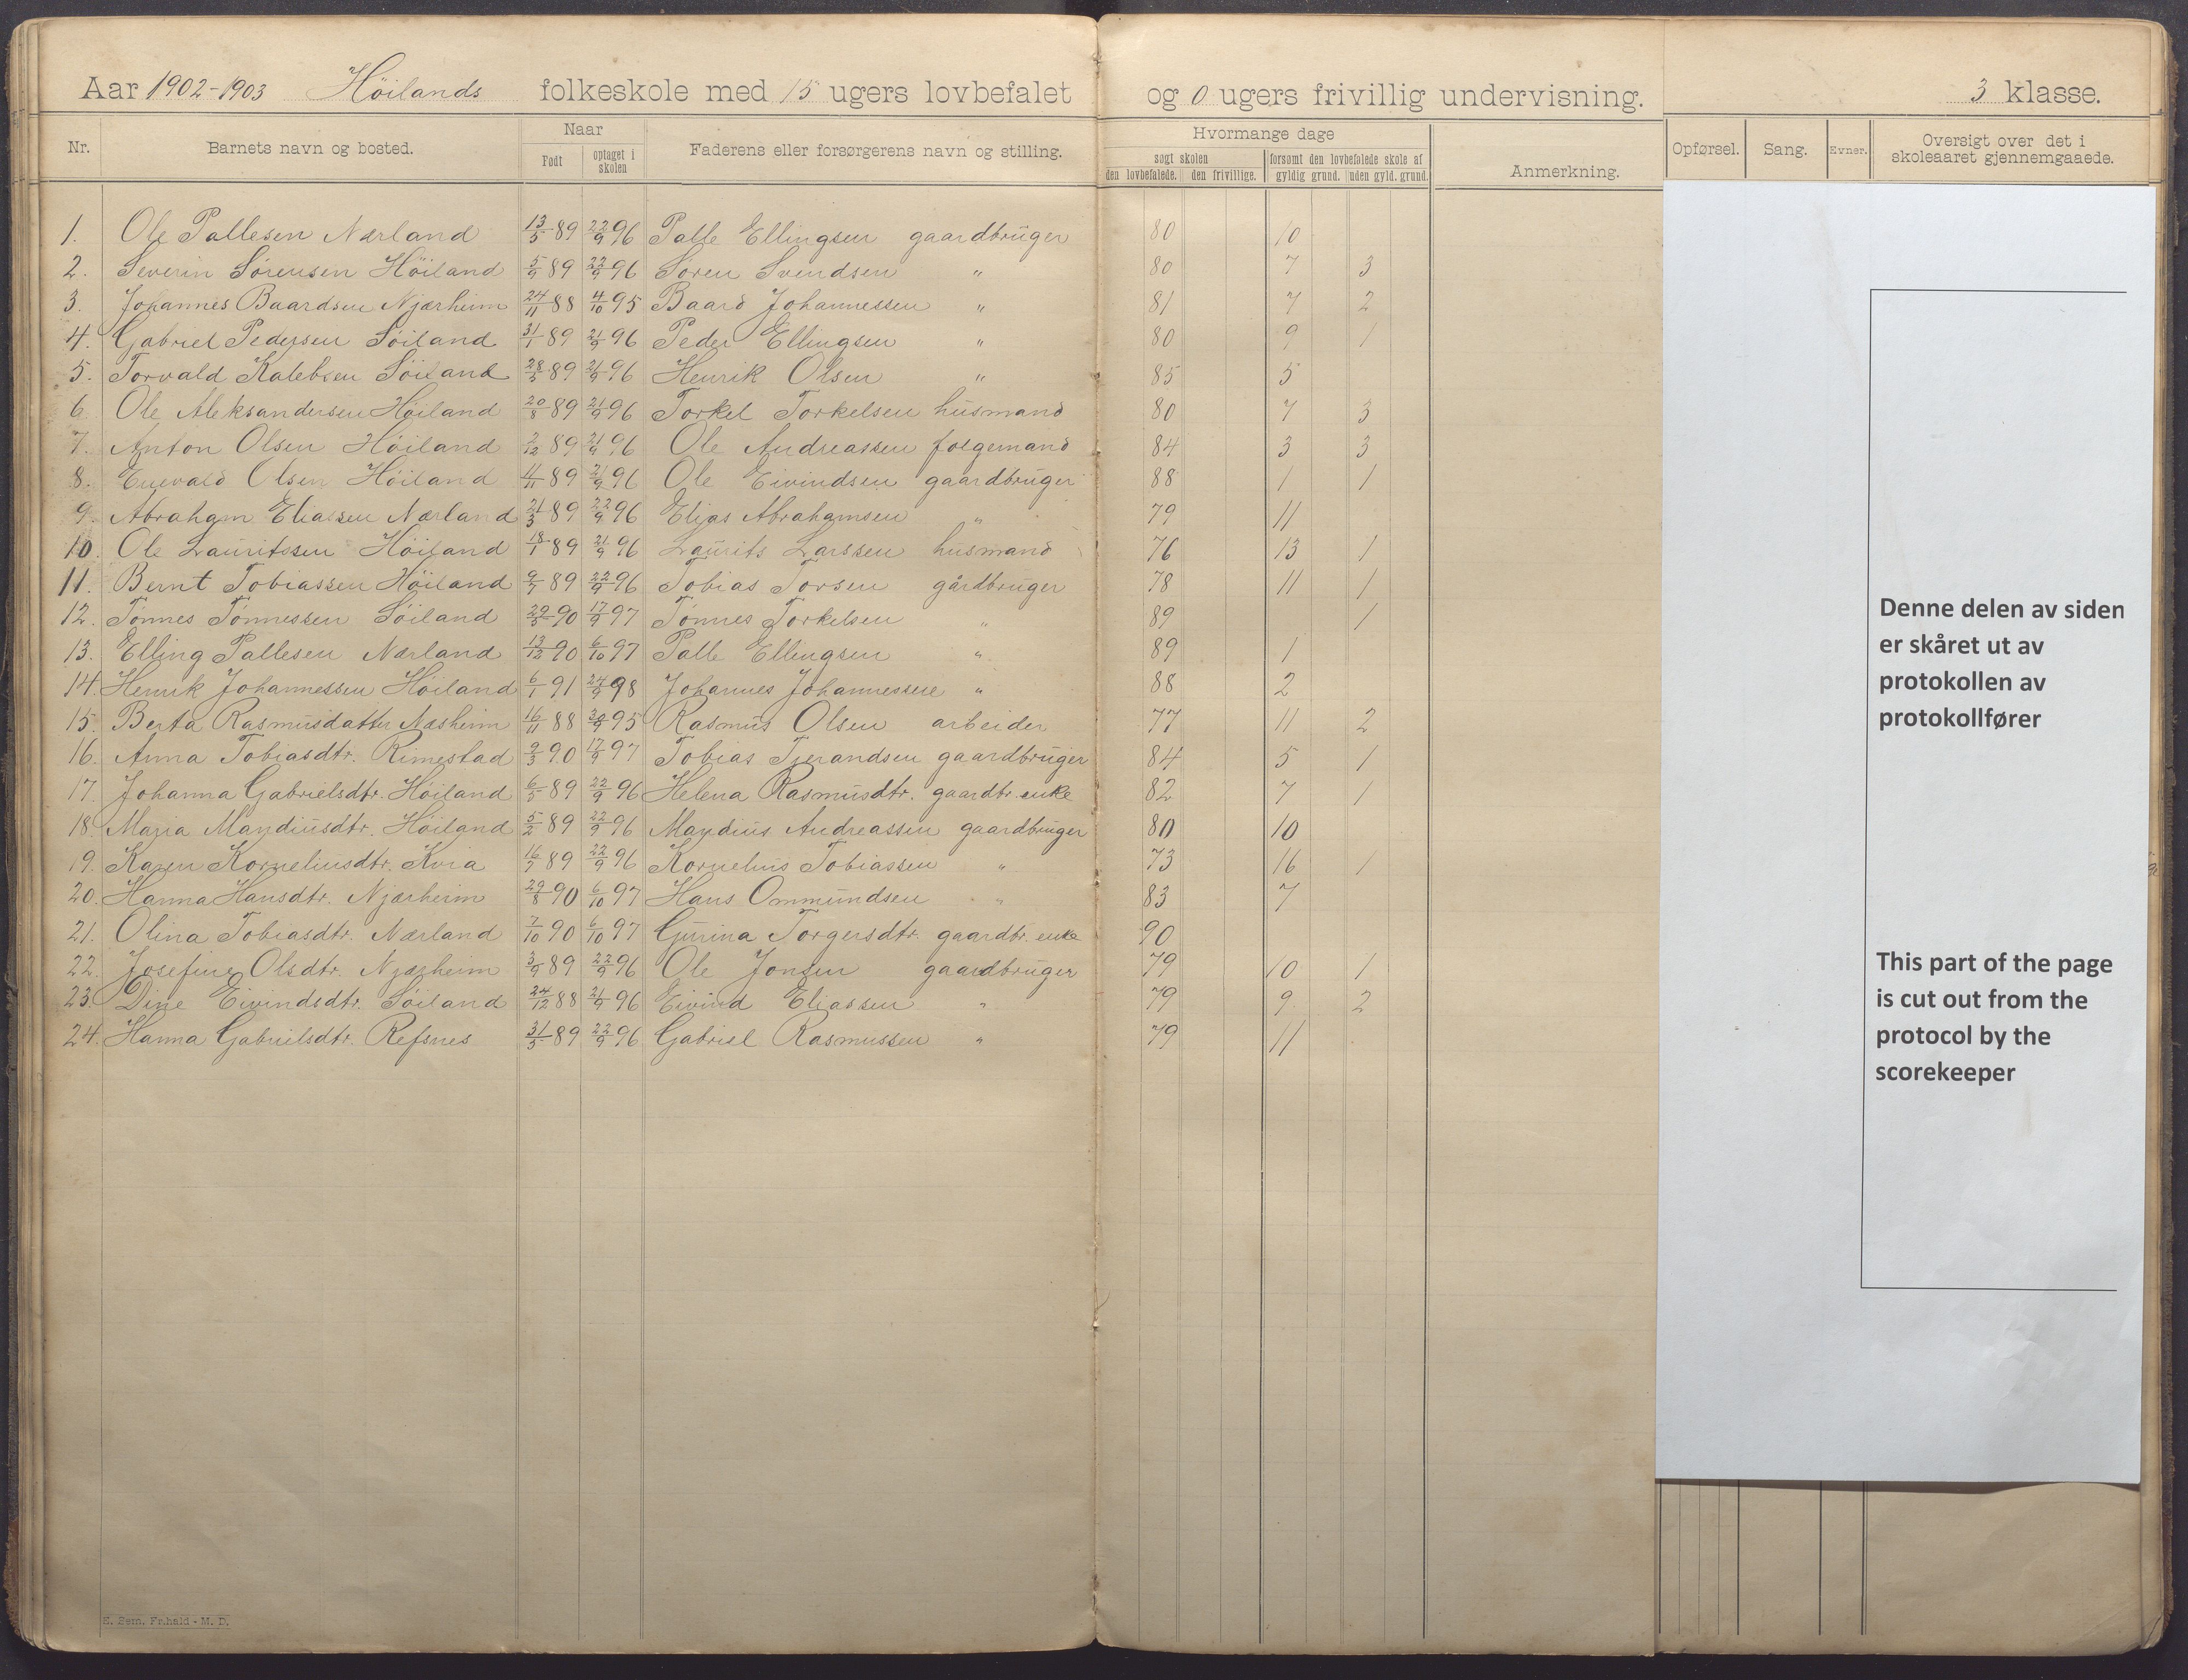 Aar 1902-1903 Höilands folkeskole med 15 ugers lovbefalet og 0 ugers frivillig undervisning. 3 klasse.
Nr. Barnets navn og bosted. Naar Født optaget i skolen Faderens eller forsørgerens navn og stilling. Hvormange dage søgt skolen den lovbefalede. den frivillige. forsømt den lovbefalede skole af gyldig grund. uden gyld. grund. Anmerkning. Opførsel. Sang. Evner. Oversigt over det i skoleaaret gjennemgaaede.
1. Ole Pallesen Nærland 13/5 89 22/9 96 Palle Ellingsen gaardbruger 80 10
2. Severin Sørensen Höiland 5/9 89 22/9 96 Søren Svendsen " 80 7 3
3. Johannes Baardsen Njærheim 24/11 88 4/10 95 Baard Johannessen " 81 7 2
4. Gabriel Pedersen Söiland 31/1 89 21/9 96 Peder Ellingsen " 80 9 1
5. Torvald Kalebsen Söiland 28/5 89 21/9 96 Henrik Olsen " 85 5
6. Ole Aleksandersen Høiland 20/8 89 21/9 96 Torkel Torkelsen husmand 80 7 3
7. Anton Olsen Höiland 2/12 89 21/9 96 Ole Andreassen folgemand 84 3 3
8. Enevald Olsen Höiland 4/11 89 21/9 96 Ole Eivindsen gaardbruger 88 1 1
9. Abraham Eliassen Nærland 21/3 89 22/9 96 Elias Abrahamsen " 79 11
10. Ole Lauritssen Höiland 18/1 89 21/9 96 Laurits Larssen husmand 76 13 1
11. Bernt Tobiassen Höiland 9/7 89 22/9 96 Tobias Torsen gårdbruger 78 11 1
12. Tønnes Tønnessen Söiland 29/5 90 17/9 97 Tønnes Torkelsen " 89 1
13. Elling Pallesen Nærland 13/12 90 6/10 97 Palle Ellingsen " 89 1
14. Henrik Johannessen Höiland 6/1 91 24/9 98 Johannes Johannessen " 88 2
15. Berta Rasmusdatter Næsheim 16/11 88 95 Rasmus Olsen arbeider 77 11 2
16. Anna Tobiasdtr. Rimestad 9/3 90 17/9 97 Tobias Tjerandsen gaardbruger 84 5 1
17. Johanna Gabrielsdtr. Höiland 6/5 89 22/9 96 Helena Rasmusdtr. gaardbr. enke 82 7 1
18. Maria Mandiusdtr. Höiland 5/2 89 22/9 96 Mandius Andreassen gaardbruger 80 10
19. Karen Korneliusdtr. Kvia 16/7 89 22/9 96 Kornelius Tobiassen " 73 16 1
20. Hanna Hansdtr. Njærheim 29/8 90 6/10 97 Hans Ommundsen " 83 7
21. Olina Tobiasdtr. Nærland 7/10 90 6/10 97 Gurina Torgersdtr. gaardbr. enke 90
22. Josefine Olsdtr. Njærheim 3/9 89 22/9 96 Ole Jonsen gaardbruger 79 10 1
23. Dine Eivindsdtr. Söiland 24/12 88 21/9 96 Eivind Eliassen " 79 9 2
24. Hanna Gabrielsdtr. Refsnes 31/5 89 22/9 96 Gabriel Rasmussen " 79 11
Denne delen av siden
er skåret ut av
protokollen av
protokollfører
This part of the page
is cut out from the
protocol by the
scorekeeper
E. Sem, Fr.hald - M. D.